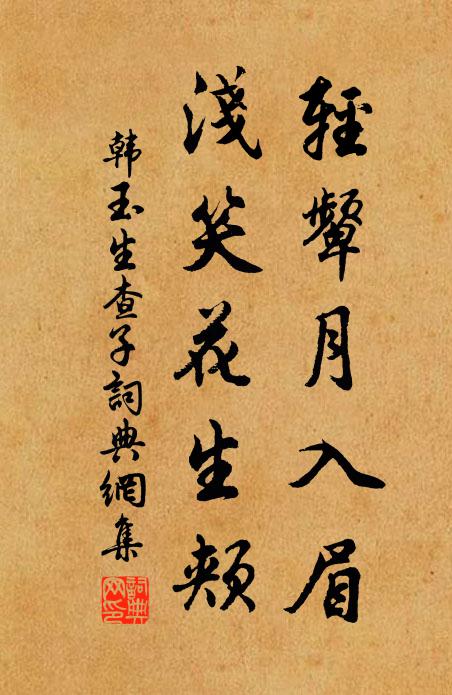 輕顰月入眉
淺笑花生頰
韩玉生查子詞典網集
詞典网印